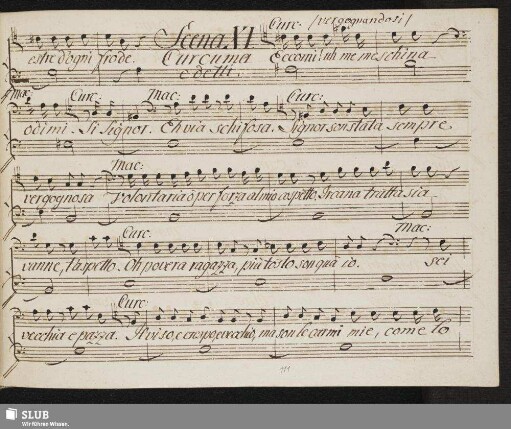 Curc: /vergognandosi/
Scena VI
estre d'ogni frode. Curcuma Eccomi! uh me meschina
e detti.
Mac: Curc: Mac: Curc:
odimi. Si Signor. Eh via schifosa. Signor son stata sempre
Mac:
vergognosa Volontaria ò per forza al mio cospetto Ircana tratta sia
Curc: Mac:
vanne, t'aspetto. Oh povera ragazza, più tosto son qua io. sei
Curc:
vecchia e pazza. Il viso, e crespo, e vecchio, ma son le carni mie, come lo
SLUB
Wir führen Wissen.